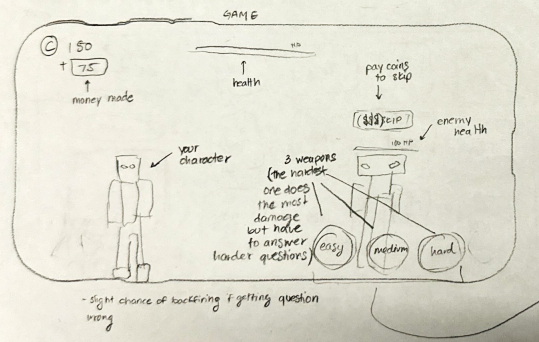 GAME
© 150
+ 75
money made
HP
health
pay coins
to skip
($$$) SKIP?
enemy
health
HP
your
character
3 weapons
(the hardest
one does
the most
damage
but have
to answer
harder questions)
easy
medium
hard
- slight chance of backfiring if getting question
wrong